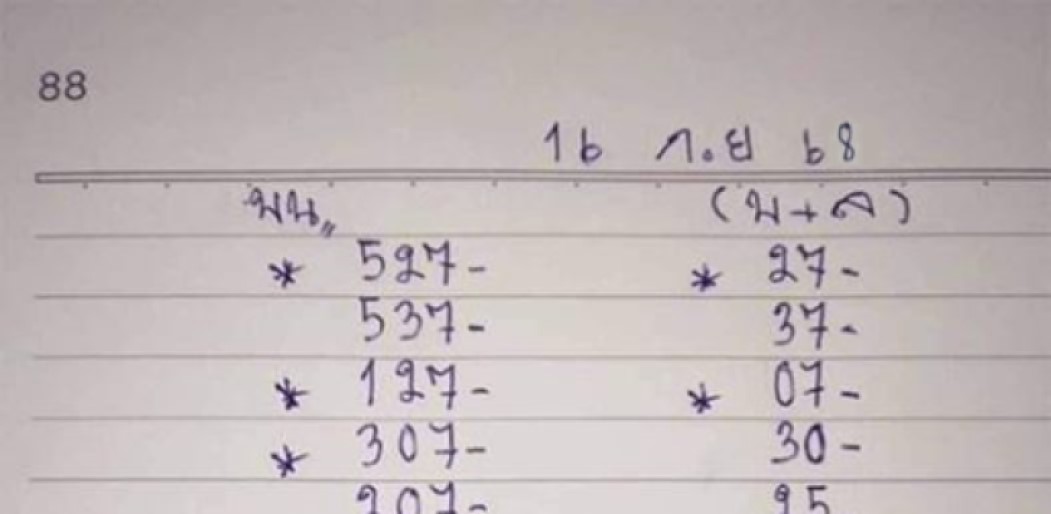 88
16 ก.ย 68
บน,, (บ+ล)
* 527- * 27-
537- 37-
* 127- * 07-
* 307- 30-
207- 25